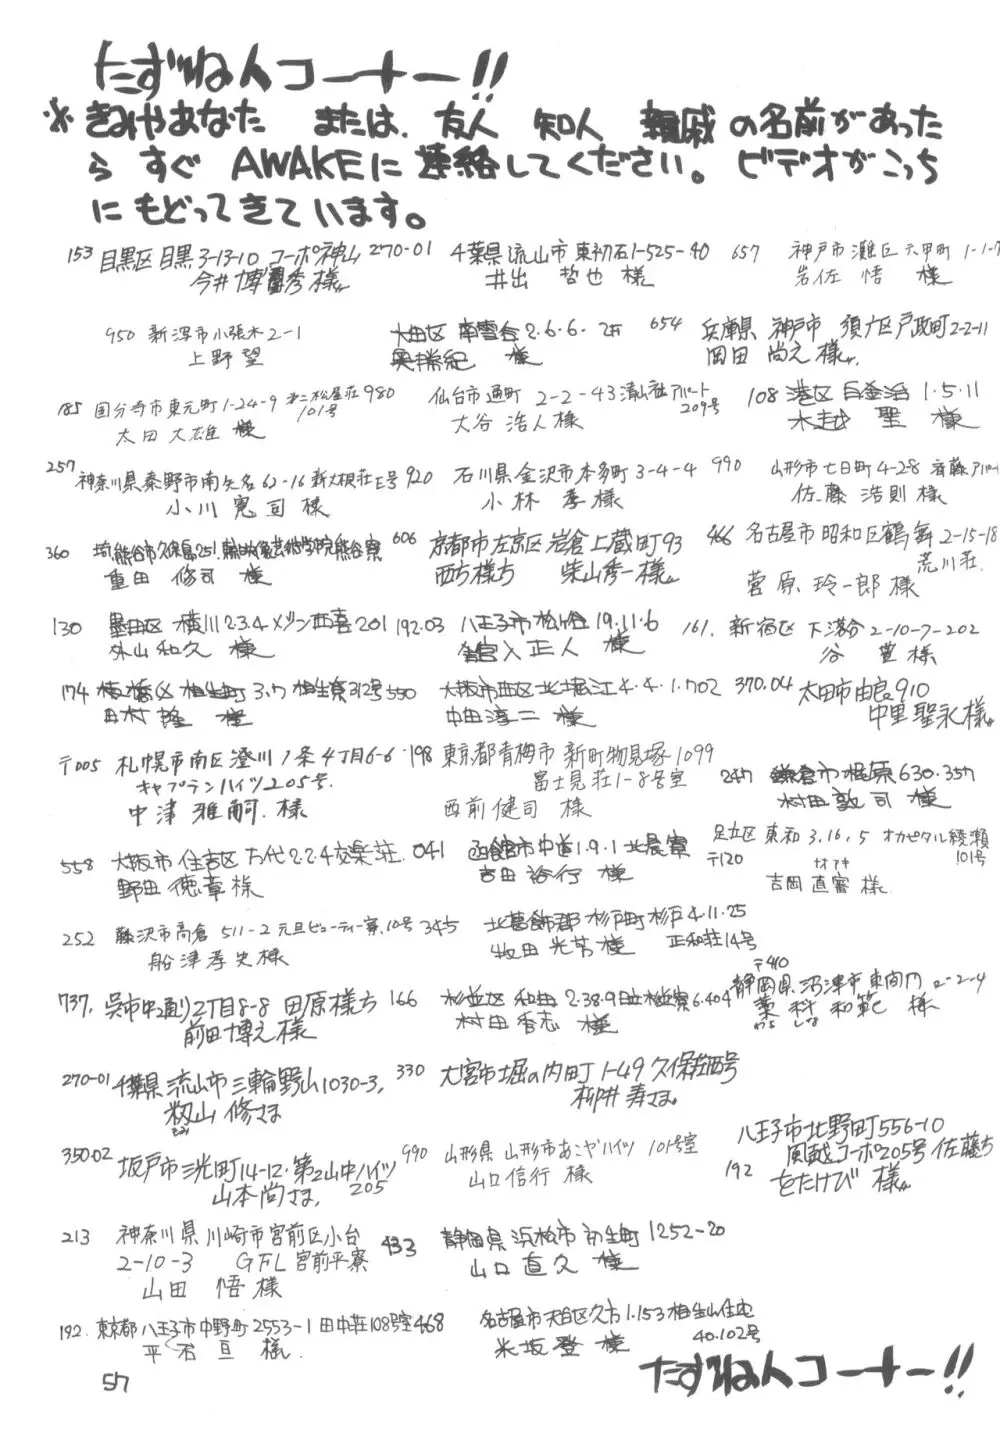 たずね人コーナー!!
※きみやあなた または、友人 知人 親戚の名前があった
ら すぐ AWAKEに連絡してください。ビデオがこっち
にもどってきています。
153 目黒区目黒3-13-10 コーポ神山
今井博秀様
270-01 千葉県流山市東初石1-525-40
井出哲也様
657 神戸市灘区六甲町1-1-7
岩佐悟様
950 新潟市小張木2-1
上野望
大田区南雪谷2.6.6.2F
奥勝紀様
654 兵庫県神戸市須广区戸政町2-2-11
岡田尚之様
185 国分寺市東元町1-24-9 第二松屋荘
101号
太田大雄様
980 仙台市通町2-2-43清山社アパート
209号
大谷浩人様
108 港区白金台1.5.11
木越聖様
257 神奈川県秦野市南矢名62-16新大根荘E号
小川寛司様
920 石川県金沢市本多町3-4-4
小林孝様
990 山形市七日町4-28 斉藤アパート
佐藤浩則様
360
熊谷寮
重田修司様
606 京都市左京区岩倉上蔵町93
西方様方 柴山秀一様
466 名古屋市昭和区鶴舞2-15-18
荒川荘
菅原玲一郎様
130 墨田区横川2.3.4メゾン西喜201
外山和久様
192.03 八王子市松が谷19.11.6
正人様
161. 新宿区下落合2-10-7-202
谷豊様
174 板橋区相生町3.7相生寮312号
田村隆様
550 大阪市西区北堀江4.4.1.702
中田淳二様
370.04 太田市由良910
中里聖永様
〒005 札幌市南区澄川1条4丁目6-6
キャプテンハイツ205号.
中津雅嗣.様
198 東京都青梅市新町物見塚1099
富士見荘1-8号室
西前健司様
247 鎌倉市梶原630.357
村田敦司様
558 大阪市住吉区万代2.2.4交楽荘.
野田徳章様
041 函館市中道1.9.1北晨寮
吉田裕行様
足立区東和3.16.5 オカピタル綾瀬
〒120 101号
ナオアキ
吉岡直審様.
252 藤沢市高倉511-2元旦ビューティー寮.10号
船津孝史様
345 北葛飾郡杉戸町杉戸4.11.25
正和荘14号
牧田光芳様
737. 呉市中通り2丁目8-8 田原様方
前田博之様
166 杉並区和田2.38.9日立杉並寮6.404
村田香志様
〒410
静岡県沼津市東間門2-2-4
藁科和範様
わらしな
270-01 千葉県流山市三輪野山1030-3,
籾山修さま
もみ
330 大宮市堀の内町1-49久保荘西号
柳井寿さま
350.02 坂戸市三光町14-12.第2山中ハイツ
205
山本尚さま.
990 山形県山形市あこやハイツ101号室
山口信行様
八王子市北野町556-10
風越コーポ205号佐藤方
192 をたけび様
213 神奈川県川崎市宮前区小台
2-10-3 GFL宮前平寮
山田悟様
433 静岡県浜松市初生町1252-20
山口直久様
192. 東京都八王子市中野町2553-1田中荘108号室
平石亘様.
468 名古屋市天白区久方1.153相生山住宅
40.102号
米坂登様
たずね人コーナー!!
57